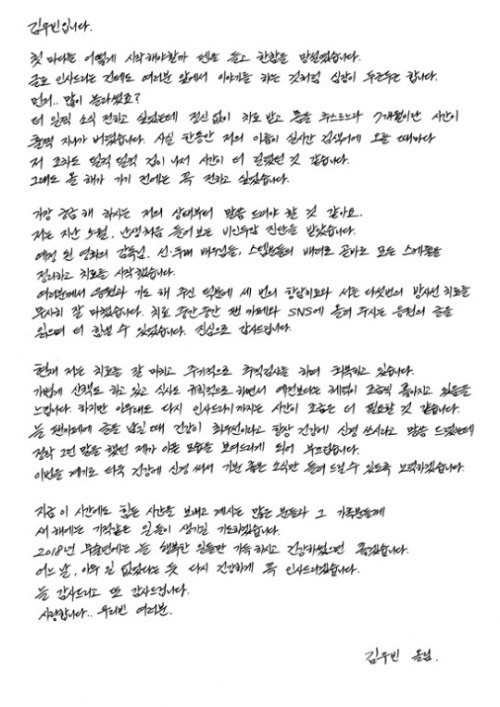 김우빈입니다.
첫 마디는 어떻게 시작해야할까 펜을 들고 한참을 망설였습니다.
글로 인사드리는 건데도 여러분 앞에서 이야기를 하는 것처럼 심장이 두근두근 합니다.
먼저.. 많이 놀라셨죠?
더 일찍 소식 전하고 싶었는데 정신 없이 치료 받고 몸을 추스르느라 7개월이란 시간이
훌쩍 지나가 버렸습니다. 사실 한동안 저의 이름이 실시간 검색어에 오를 때마다
저 조차도 덜컥 덜컥 겁이 나서 시간이 더 걸렸던 것 같습니다.
그래도 올 해가 가기 전에는 꼭 전하고 싶었습니다.
가장 궁금해 하시는 저의 상태부터 말씀 드려야 할 것 같아요.
저는 지난 5월, 난생처음 들어보는 비인두암 진단을 받았습니다.
예정 된 영화의 감독님, 선·후배 배우님들, 스텝분들의 배려로 곧바로 모든 스케줄을
정리하고 치료를 시작했습니다.
여러분께서 응원과 기도 해 주신 덕분에 세 번의 항암치료와 서른 다섯번의 방사선 치료를
무사히 잘 마쳤습니다. 치료 중간중간 팬 카페와 SNS에 올려 주시는 응원의 글을
읽으며 더 힘낼 수 있었습니다. 진심으로 감사드립니다.
현재 저는 치료를 잘 마치고 주기적으로 추적검사를 하며 회복하고 있습니다.
가볍게 산책도 하고 있고 식사도 규칙적으로 하면서 예전보다는 체력이 조금씩 좋아지고 있음을
느낍니다. 하지만 아무래도 다시 인사드리기까지는 시간이 조금은 더 필요할 것 같습니다.
늘 팬카페에 글을 남길 때 건강이 최우선이라고 항상 건강에 신경 쓰시라고 말씀 드렸는데
정작 그런 말을 했던 제가 아픈 모습을 보여드리게 되어 부끄럽습니다.
이번을 계기로 더욱 건강에 신경 써서 기쁘고 좋은 소식만 들려 드릴 수 있도록 노력하겠습니다.
지금 이 시간에도 힘든 시간을 보내고 계시는 많은 분들과 그 가족분들께
새 해에는 기적같은 일들이 생기길 기도하겠습니다.
2018년 무술년에는 늘 행복한 일들만 가득 하시고 건강하셨으면 좋겠습니다.
어느 날, 아무 일 없었다는 듯 다시 건강하게 꼭 인사드리겠습니다.
늘 감사드리고 또 감사드립니다.
사랑합니다.. 우리빈 여러분.
김우빈 올림.